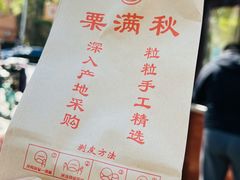 栗满秋
粒粒手工精选
深入产地采购
剥皮方法